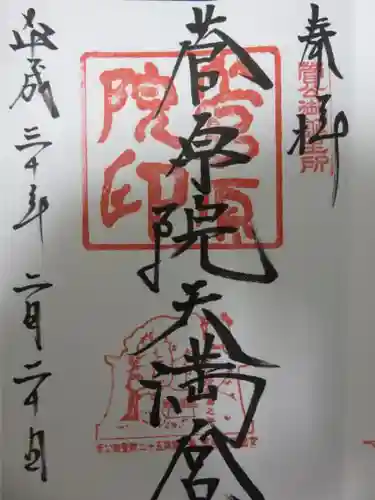 奉拝
菅公御誕生所
菅原院天満宮
菅原
院印
平成三十年二月二十日